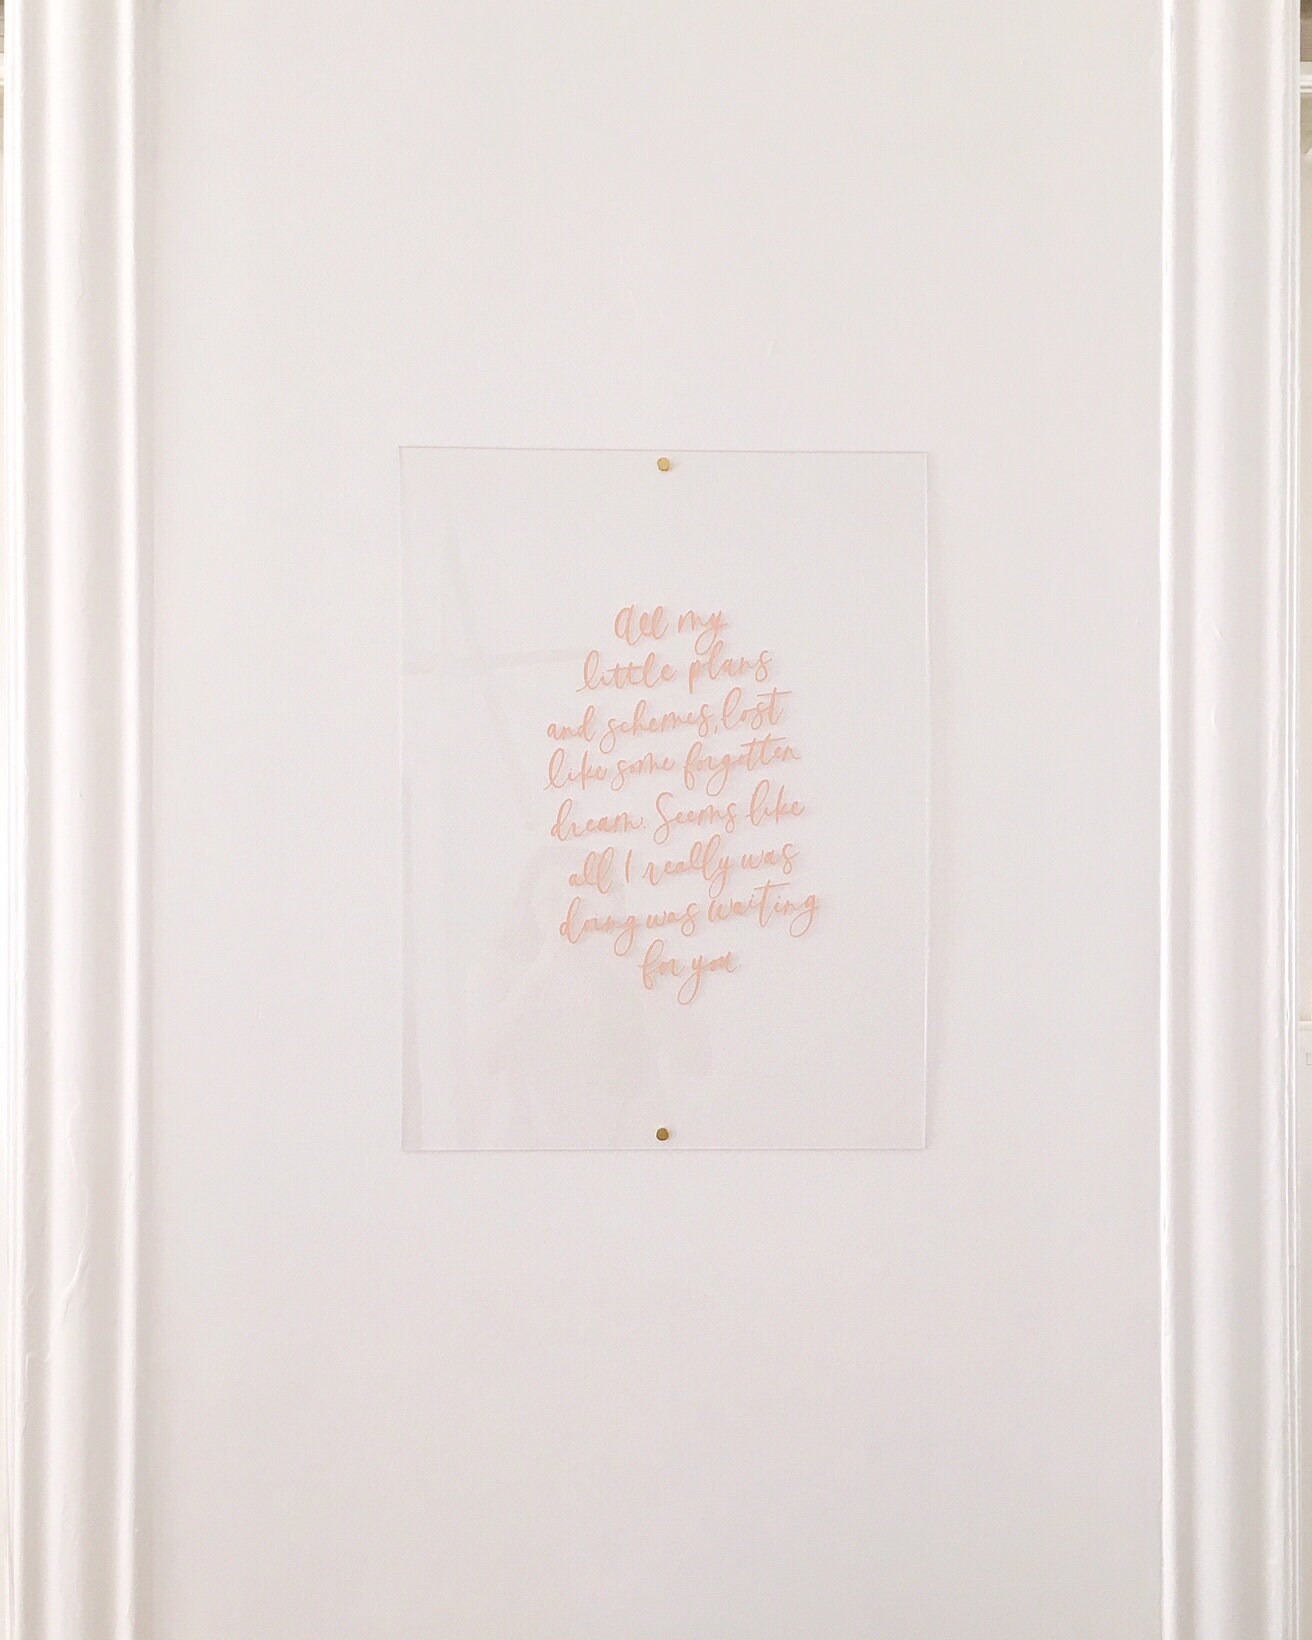 All my
little plans
and schemes, lost
like some forgotten
dream. Seems like
all I really was
doing was waiting
for you